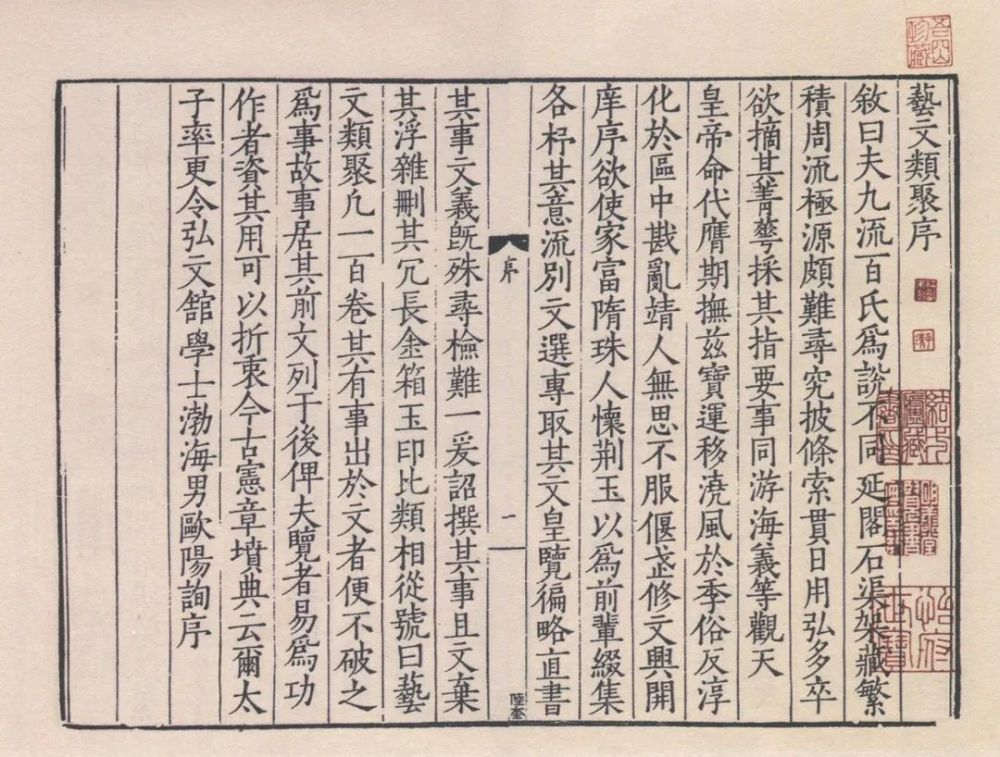 藝文類聚序
敘曰夫九流百氏爲說不同延閣石渠架藏繁
積周流極源頗難尋究披條索貫日用弘多卒
欲摘其菁華採其指要事同游海義等觀天
皇帝命代膺期撫茲寶運移澆風於季俗反淳
化於區中戡亂靖人無思不服偃武修文興開
庠序欲使家富隋珠人懷荆玉以爲前輩綴集
各杼其意流別文選專取其文皇覽徧略直書
序
一
陸奎
其事文義旣殊尋檢難一爰詔撰其事且文棄
其浮雜刪其冗長金箱玉印比類相從號曰藝
文類聚凢一百卷其有事出於文者便不破之
爲事故事居其前文列于後俾夫覽者易爲功
作者資其用可以折衷今古憲章墳典云爾太
子率更令弘文舘學士渤海男歐陽詢序